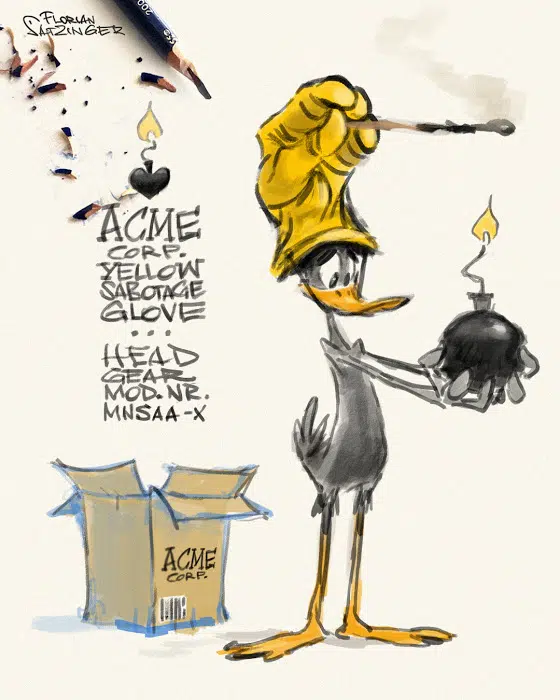 FLORIAN
SATZINGER
200
ACME
CORP.
YELLOW
SABOTAGE
GLOVE
...
HEAD
GEAR
MOD. NR.
MNSAA-X
ACME
CORP.